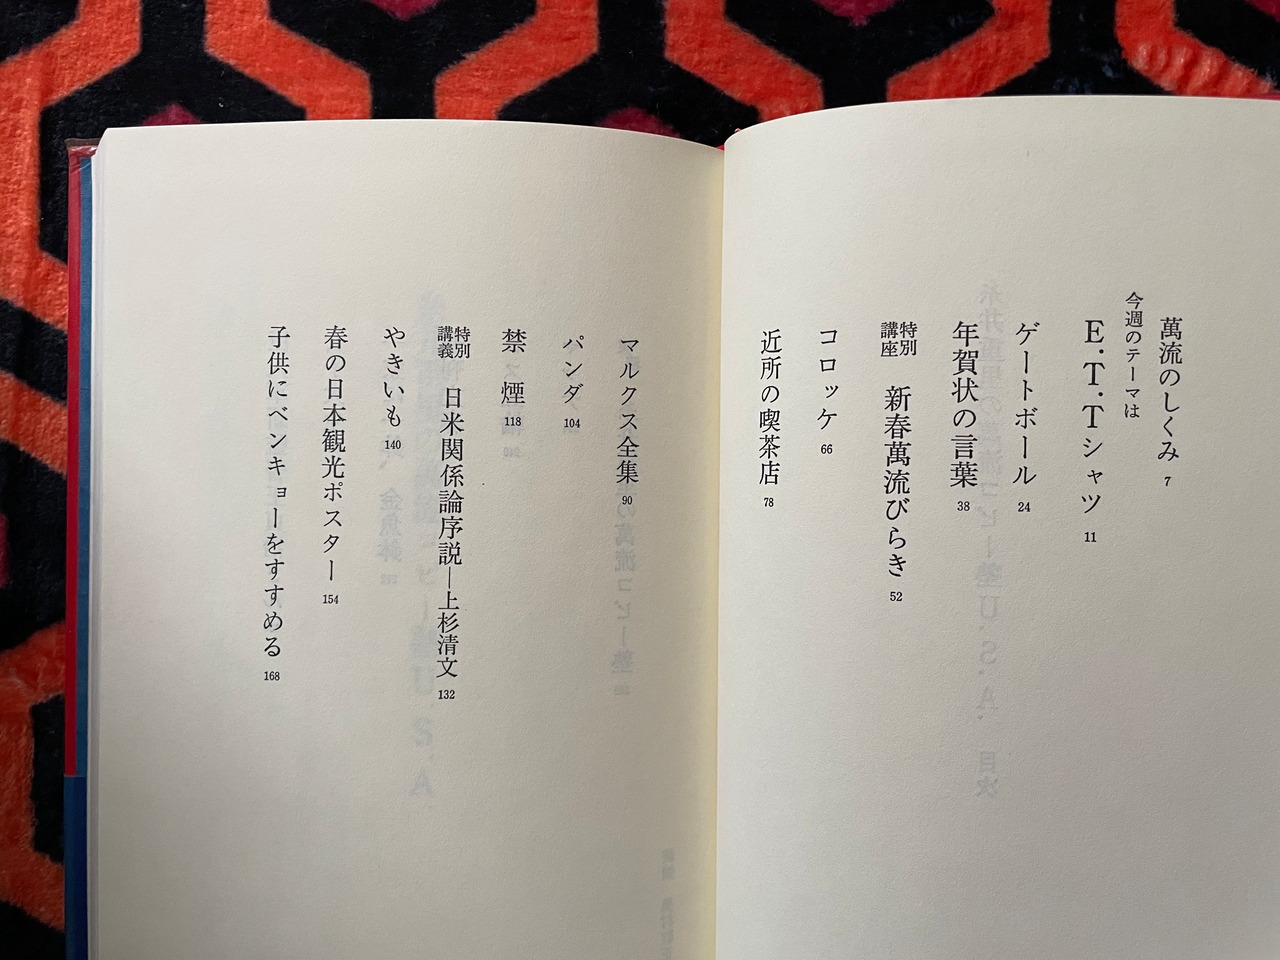 萬流のしくみ 7
今週のテーマは
E.T.Tシャツ 11
ゲートボール 24
年賀状の言葉 38
特別講座 新春萬流びらき 52
コロッケ 66
近所の喫茶店 78
マルクス全集 90
パンダ 104
禁煙 118
特別講義 日米関係論序説―上杉清文 132
やきいも 140
春の日本観光ポスター 154
子供にベンキョーをすすめる 168